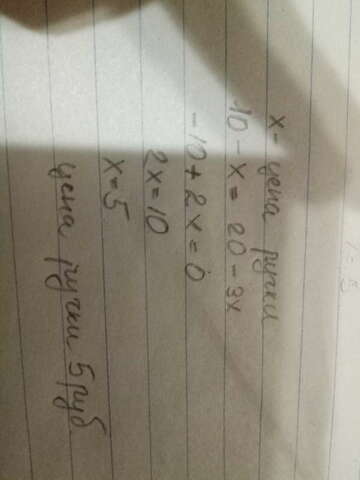 x - цена ручки
10 - x = 20 - 3x
-10 + 2x = 0
2x = 10
x = 5
цена ручки 5 руб